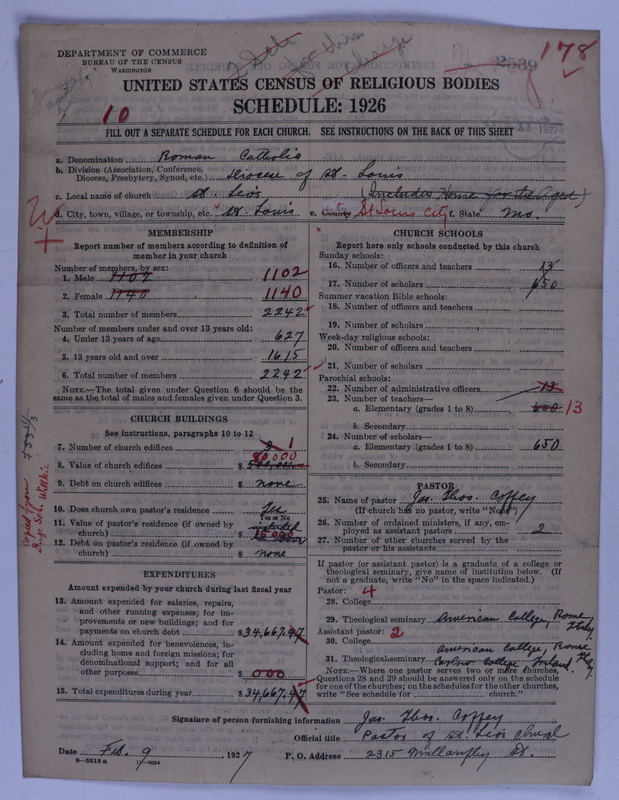 DEPARTMENT OF COMMERCE
BUREAU OF THE CENSUS
WASHINGTON
2539
178
UNITED STATES CENSUS OF RELIGIOUS BODIES
SCHEDULE: 1926
10
1927
FILL OUT A SEPARATE SCHEDULE FOR EACH CHURCH. SEE INSTRUCTIONS ON THE BACK OF THIS SHEET
a. Denomination Roman Catholic
b. Division (Association, Conference, Diocese, Presbytery, Synod, etc.) Diocese of St. Louis
c. Local name of church St. Leo's (Includes Home for the Aged)
d. City, town, village, or township, etc. St. Louis e. County St Louis City f. State Mo.
MEMBERSHIP
Report number of members according to definition of
member in your church
Number of members, by sex:
1. Male 1102 1102
2. Female 1140 1140
3. Total number of members 2242
Number of members under and over 13 years old:
4. Under 13 years of age 627
5. 13 years old and over 1615
6. Total number of members 2242
NOTE.—The total given under Question 6 should be
the same as the total of males and females given under Question 3.
CHURCH BUILDINGS
See instructions, paragraphs 10 to 12
7. Number of church edifices 1
8. Value of church edifices $
9. Debt on church edifices $ none
10. Does church own pastor's residence Yes
Yes or No
11. Value of pastor's residence (if owned by
church) $ included
12. Debt on pastor's residence (if owned by
church) $ none
EXPENDITURES
Amount expended by your church during last fiscal year
13. Amount expended for salaries, repairs,
and other running expenses; for im-
provements or new buildings; and for
payments on church debt $ 34,667.47
14. Amount expended for benevolences, in-
cluding home and foreign missions; for
denominational support; and for all
other purposes $ 000
15. Total expenditures during year $ 34,667.47
CHURCH SCHOOLS
Report here only schools conducted by this church
Sunday schools:
16. Number of officers and teachers 13
17. Number of scholars 650
Summer vacation Bible schools:
18. Number of officers and teachers
19. Number of scholars
Week-day religious schools:
20. Number of officers and teachers
21. Number of scholars
Parochial schools:
22. Number of administrative officers 13
23. Number of teachers—
a. Elementary (grades 1 to 8) 650 13
b. Secondary
24. Number of scholars—
a. Elementary (grades 1 to 8) 650
b. Secondary
PASTOR
25. Name of pastor Jas. Thos. Coffey
(If church has no pastor, write "None")
26. Number of ordained ministers, if any, em-
ployed as assistant pastors 2
27. Number of other churches served by the
pastor or his assistants
If pastor (or assistant pastor) is a graduate of a college or
theological seminary, give name of institution below. (If
not a graduate, write "No" in the space indicated.)
Pastor: 4
28. College
29. Theological seminary American College, Rome Italy.
Assistant pastor: 2
30. College American College, Rome Italy
31. Theological seminary Carlow College Ireland.
NOTE.—Where one pastor serves two or more churches,
Questions 28 and 29 should be answered only on the schedule
for one of the churches; on the schedules for the other churches,
write "See schedule for church."
Signature of person furnishing information Jas. Thos. Coffey
Official title Pastor of St. Leo's Church
Date Feb. 9, 1927 P. O. Address 2315 Mullanphy St.